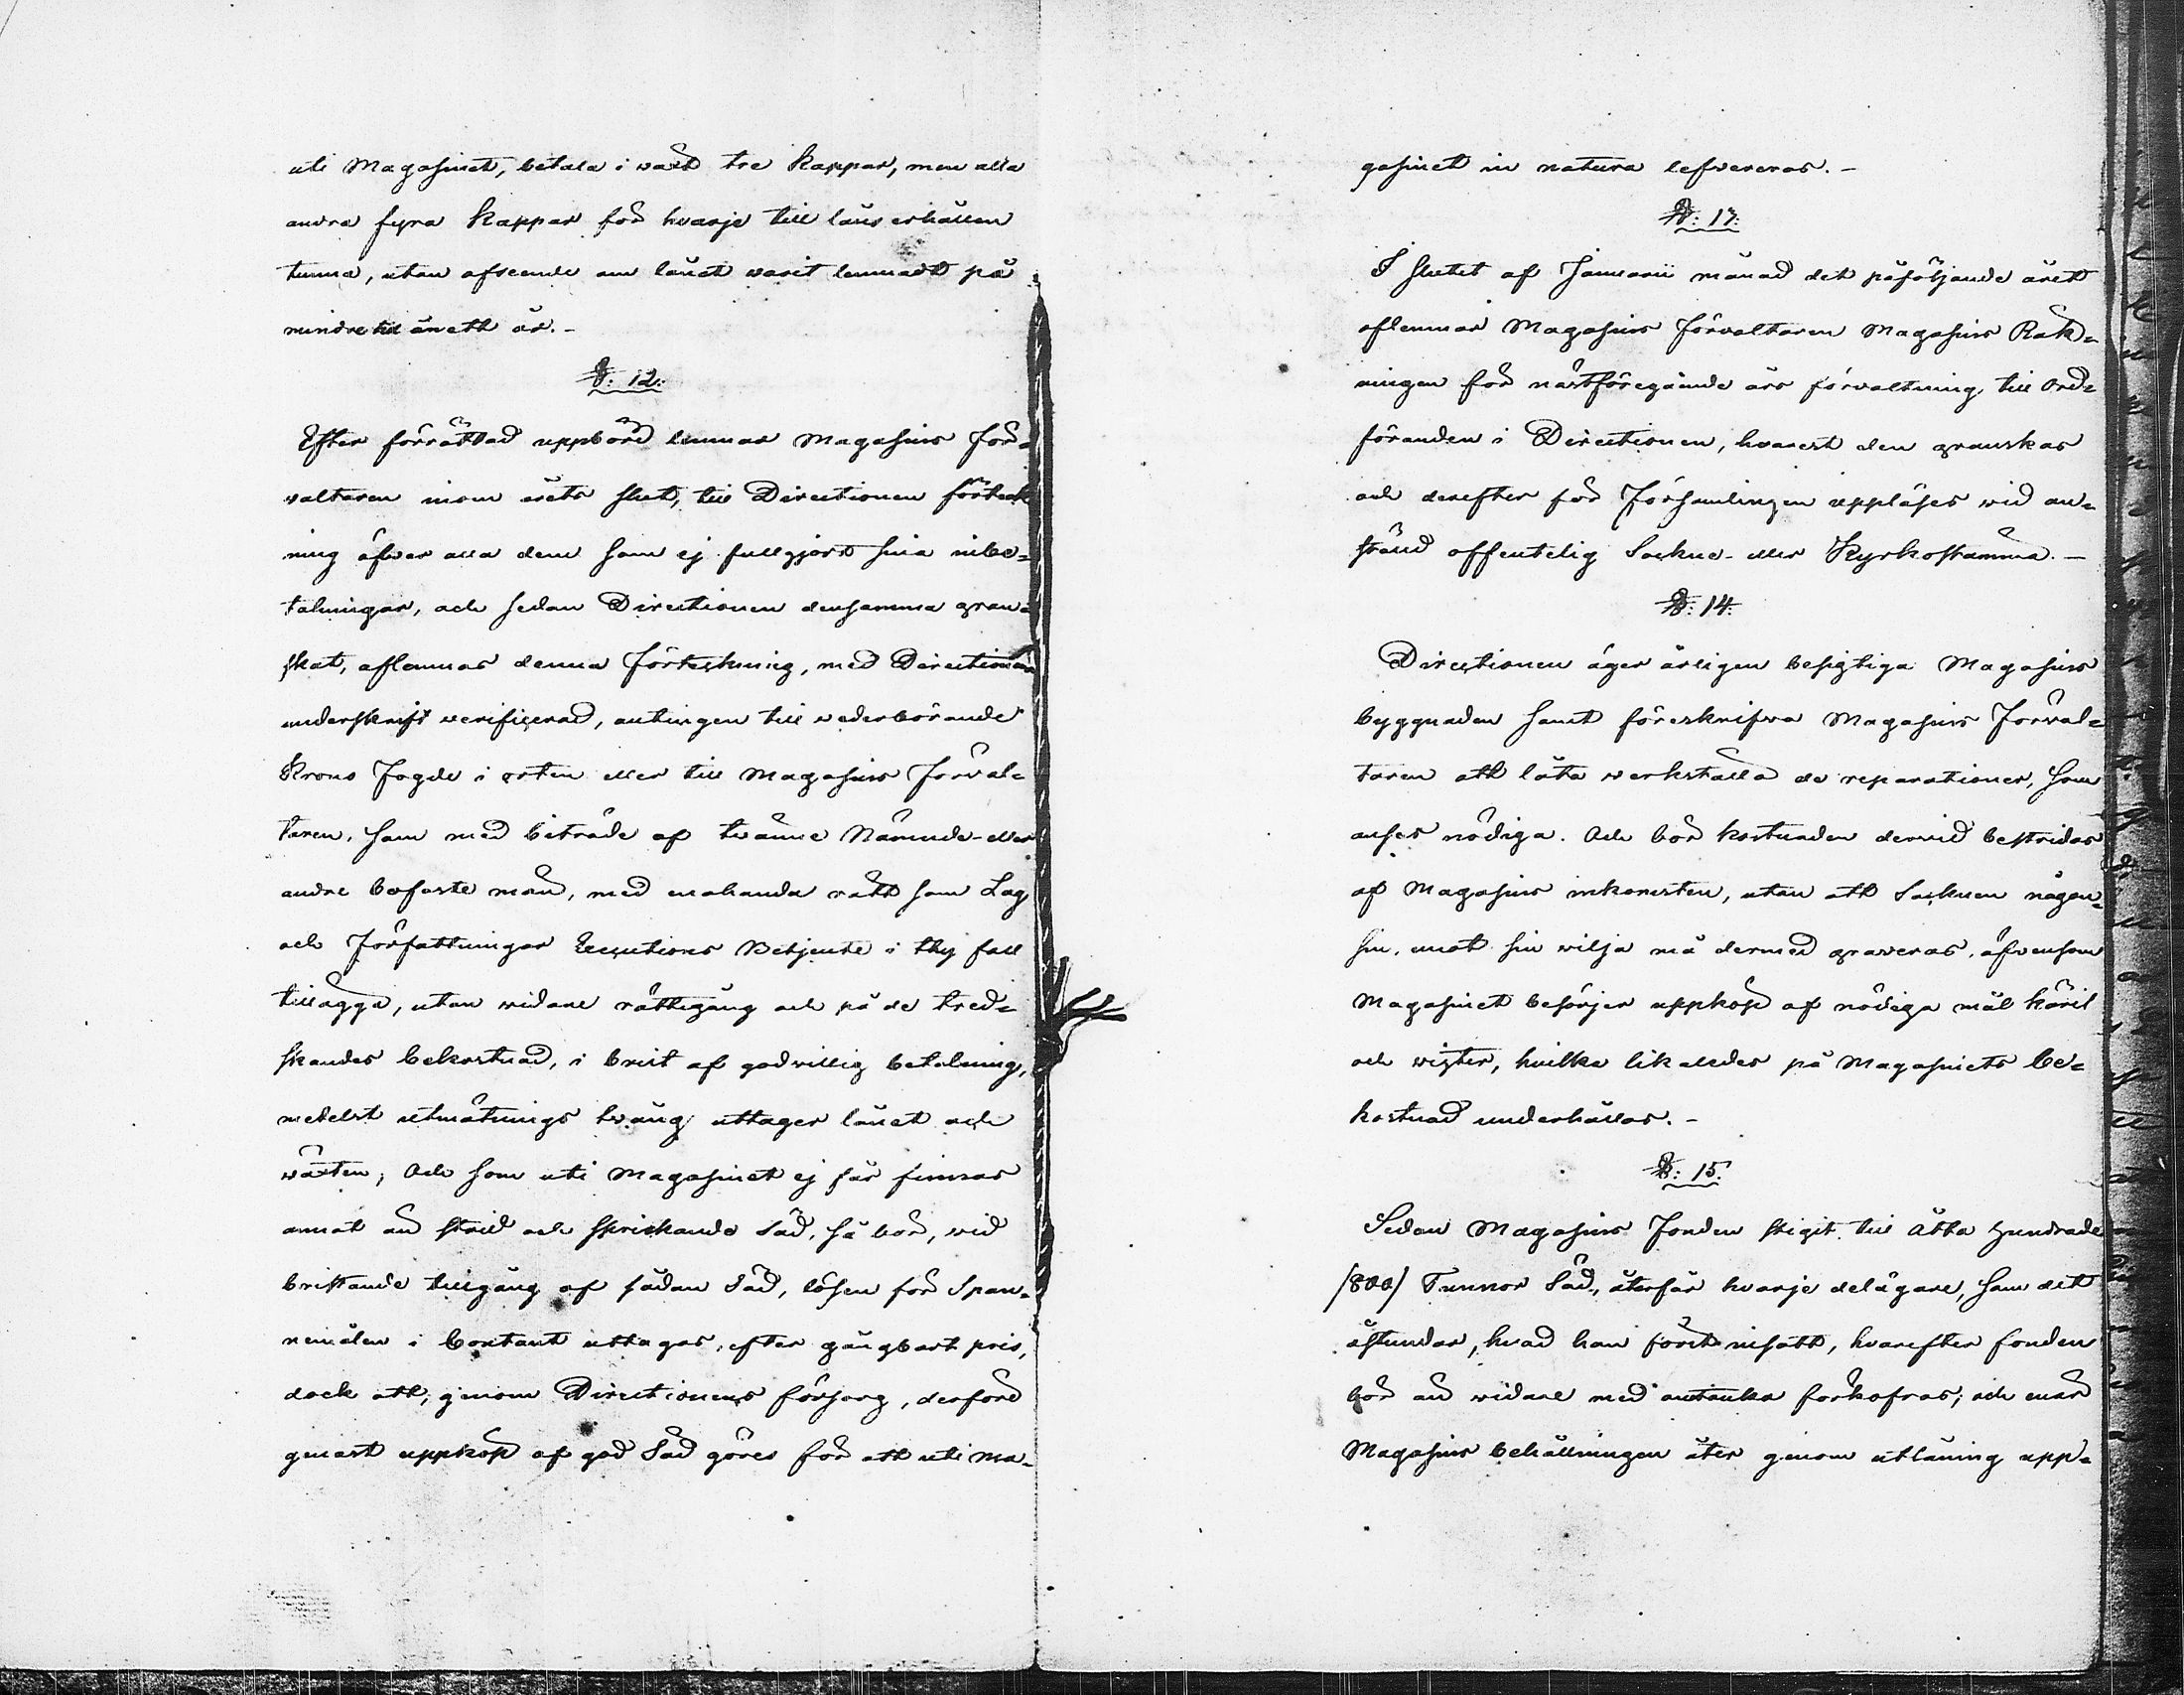 uti Magasinet, betala i wäxt tre kappar, men alla
andra fyra kappar för hvarje till låns erhållen
tunna, utan afseende om lånet warit lemnadt på
mindre tid än ett år.-
§: 12:
Efter förrättad uppbörd lemnar Magasins För-
valtaren inom årets slut, till Directionen förteck
ning öfwer alla dem som ej fullgjort sina inbe=
talningar, och sedan Directionen densamma gran=
skat, aflemnas denna förteckning, med Directionens
underskrift verificerad, antingen till wederbörande
Krono Fogde i orten eller till Magasins Förval=
taren, som med biträde af twänne Nämnde- eller
andre bofaste män, med enahanda rätt som Lag
och Författningar Executions Betjente i thy fall
tillägga, utan widare rättegång och på de tred=
skandes bekostnad, i brist af godwillig betalning,
medelst utmätnings twång uttager lånet och
wäxten; Och som uti Magasinet ej får finnas
annat än strid och skrickande Säd, så bör, wid
bristande tillgång af sådan Säd, lösen för Span=
nemålen i Contant uttagas, efter gångbart pris,
dock att, genom Directionens försorg, derföre
genast uppköp af god Säd göres för att uti Ma=
gasinet in natura lefvereras.-
§: 13:
I slutet af Januarii månad det påföljande året
aflemnar Magasins Förvaltaren Magasins Räk=
ningen för nästföregående års förvaltning till Ord=
föranden i Directionen, hvarest den granskas
och derefter för Församlingen uppläses wid an=
ställd offentelig Sockne- eller Kyrkostämma.-
§: 14:
Directionen äger årligen besigtiga Magasins
byggnaden samt föreskrifwa Magasins Förval=
taren att låta werkställa de reparationer, som
anses nödiga. Och bör kostnaden dervid bestridas
af Magasins inkomsten, utan att Socknen någon=
sin, emot sin wilja må dermed graveras, äfvensom
Magasinet besörjer uppköp af nödiga mål käril
och wigter, hvilka likaledes på Magasinets be=
kostnad underhållas.-
§: 15.
Sedan Magasins Fonden stigit till Åtta Hundrade
/800/ Tunnor Säd, återfår hvarje delägare, som det
åstundar, hvad han först insatt, hvarefter fonden
bör än widare med autanka förkofras; och enär
Magasins behållningen åter genom utlåning upp=